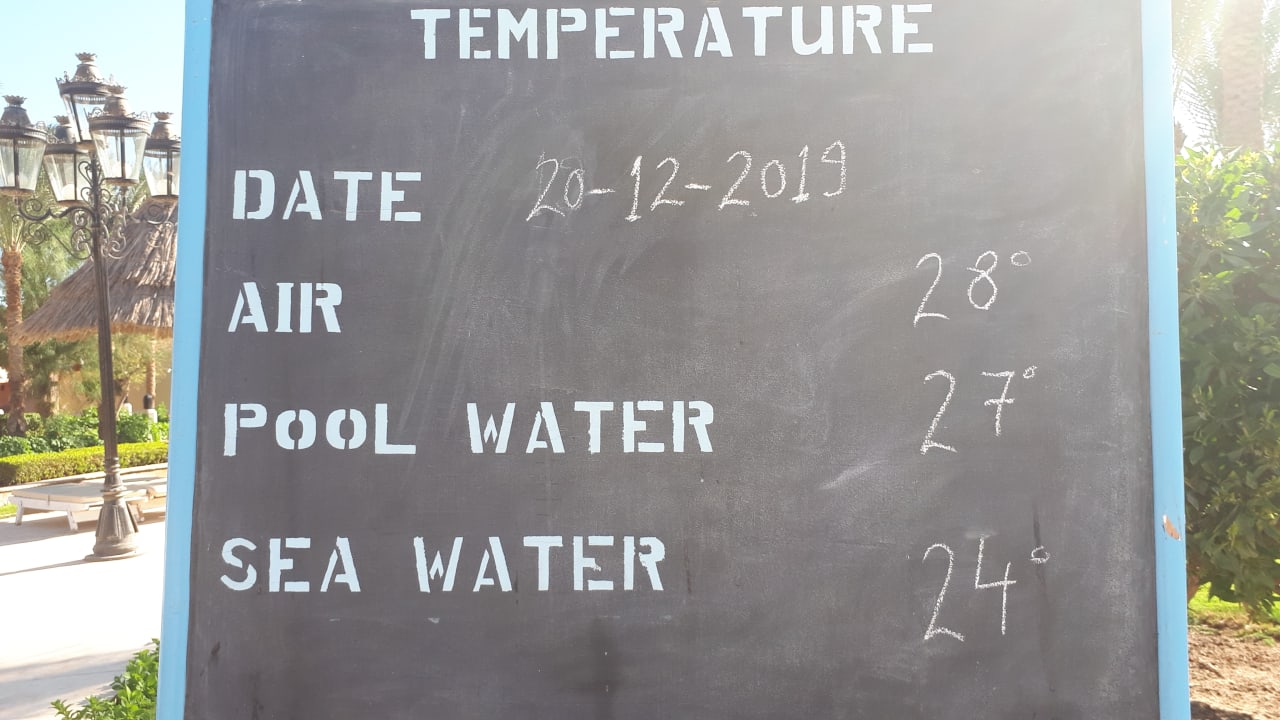 TEMPERATURE
DATE 20-12-2019
AIR 28°
POOL WATER 27°
SEA WATER 24°